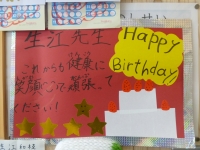 生江先生
これからも健康に
笑顔で頑張って
ください！
Happy
Birthday